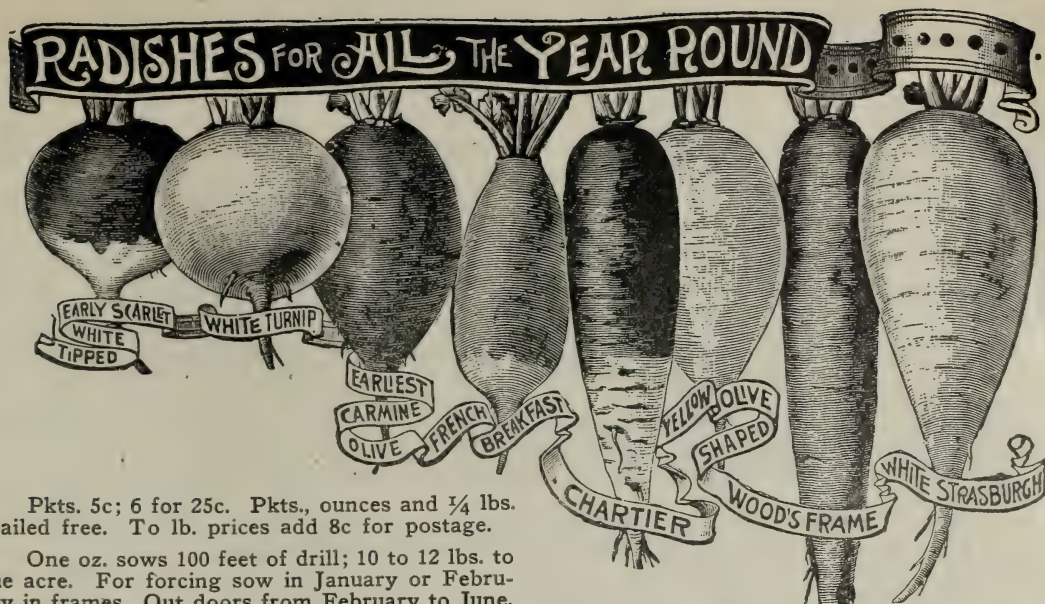 RADISHES FOR ALL THE YEAR ROUND
EARLY SCARLET
WHITE
TIPPED
WHITE TURNIP
EARLIEST
CARMINE
OLIVE
FRENCH BREAKFAST
CHARTIER
YELLOW OLIVE
SHAPED
WOOD'S FRAME
WHITE STRASBURGH
Pkts. 5c; 6 for 25c. Pkts., ounces and ¼ lbs.
ailed free. To lb. prices add 8c for postage.
One oz. sows 100 feet of drill; 10 to 12 lbs. to
e acre. For forcing sow in January or Febru-
y in frames. Out doors from February to June.